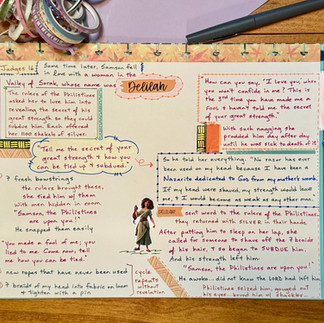 Judges 16
Some time later, Samson fell
in love with a woman in the
Valley of Sorek whose name was
Delilah
The rulers of the Philistines
asked her to lure him into
revealing the secret of his
great strength so they could
subdue him. Each offered
her 1100 shekels of silver.
Tell me the secret of your
great strength & how you
can be tied up & subdued.
7 fresh bowstrings
the rulers brought these,
she tied him with them
with men hidden in room.
"Samson, the Philistines
are upon you!"
He snapped them easily
"You made a fool of me; you
lied to me. Come now, tell
me how you can be tied."
new ropes that have never been used
7 braids of my head into fabric on loom
& tighten with a pin
cycle
repeats
without
revelation
How can you say, "I love you" when
you won't confide in me? This is
the 3rd time you have made me a
fool & haven't told me the secret
of your great strength."
With such nagging she
prodded him day after day
until he was sick to death of it
So he told her everything. "No razor has ever
been used on my head because I have been a
Nazarite dedicated to God from my mother's womb.
If my head were shaved, my strength would leave
me, & I would become as weak as any other man.
DELILAH
sent word to the rulers of the Philistines.
they returned with SILVER in their hands
After putting him to sleep on her lap, she
called for someone to shave off the 7 braids
of his hair, & so began to SUBDUE him.
And his strength left him
"Samson, the Philistines are upon you!"
He awoke.. did not know the LORD had left him
Philistines seized him, gouged out
his eyes, bound him in shackles